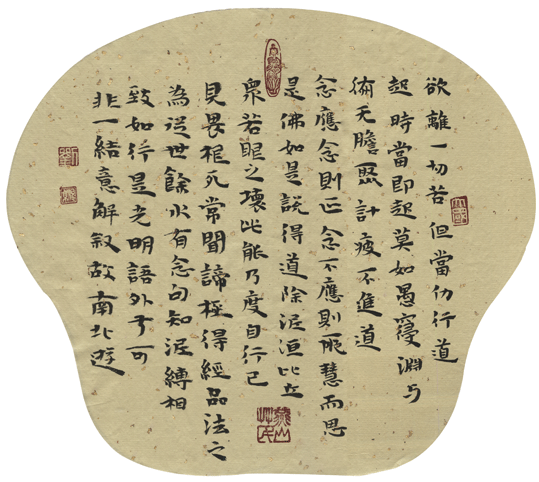 欲離一切苦但當仂行道
起時當即起莫如愚窹淵与
无膽聚計疲不進道
念應念則正念不應則慧而思
是佛如是說得道除泥洹比丘
衆若眼之壞此能乃度自行己
見畏死常聞諦極得經品法之
為從世餘水有念句知泥縛相
致如行是光明語外于可
非一結意解叙故南北遊